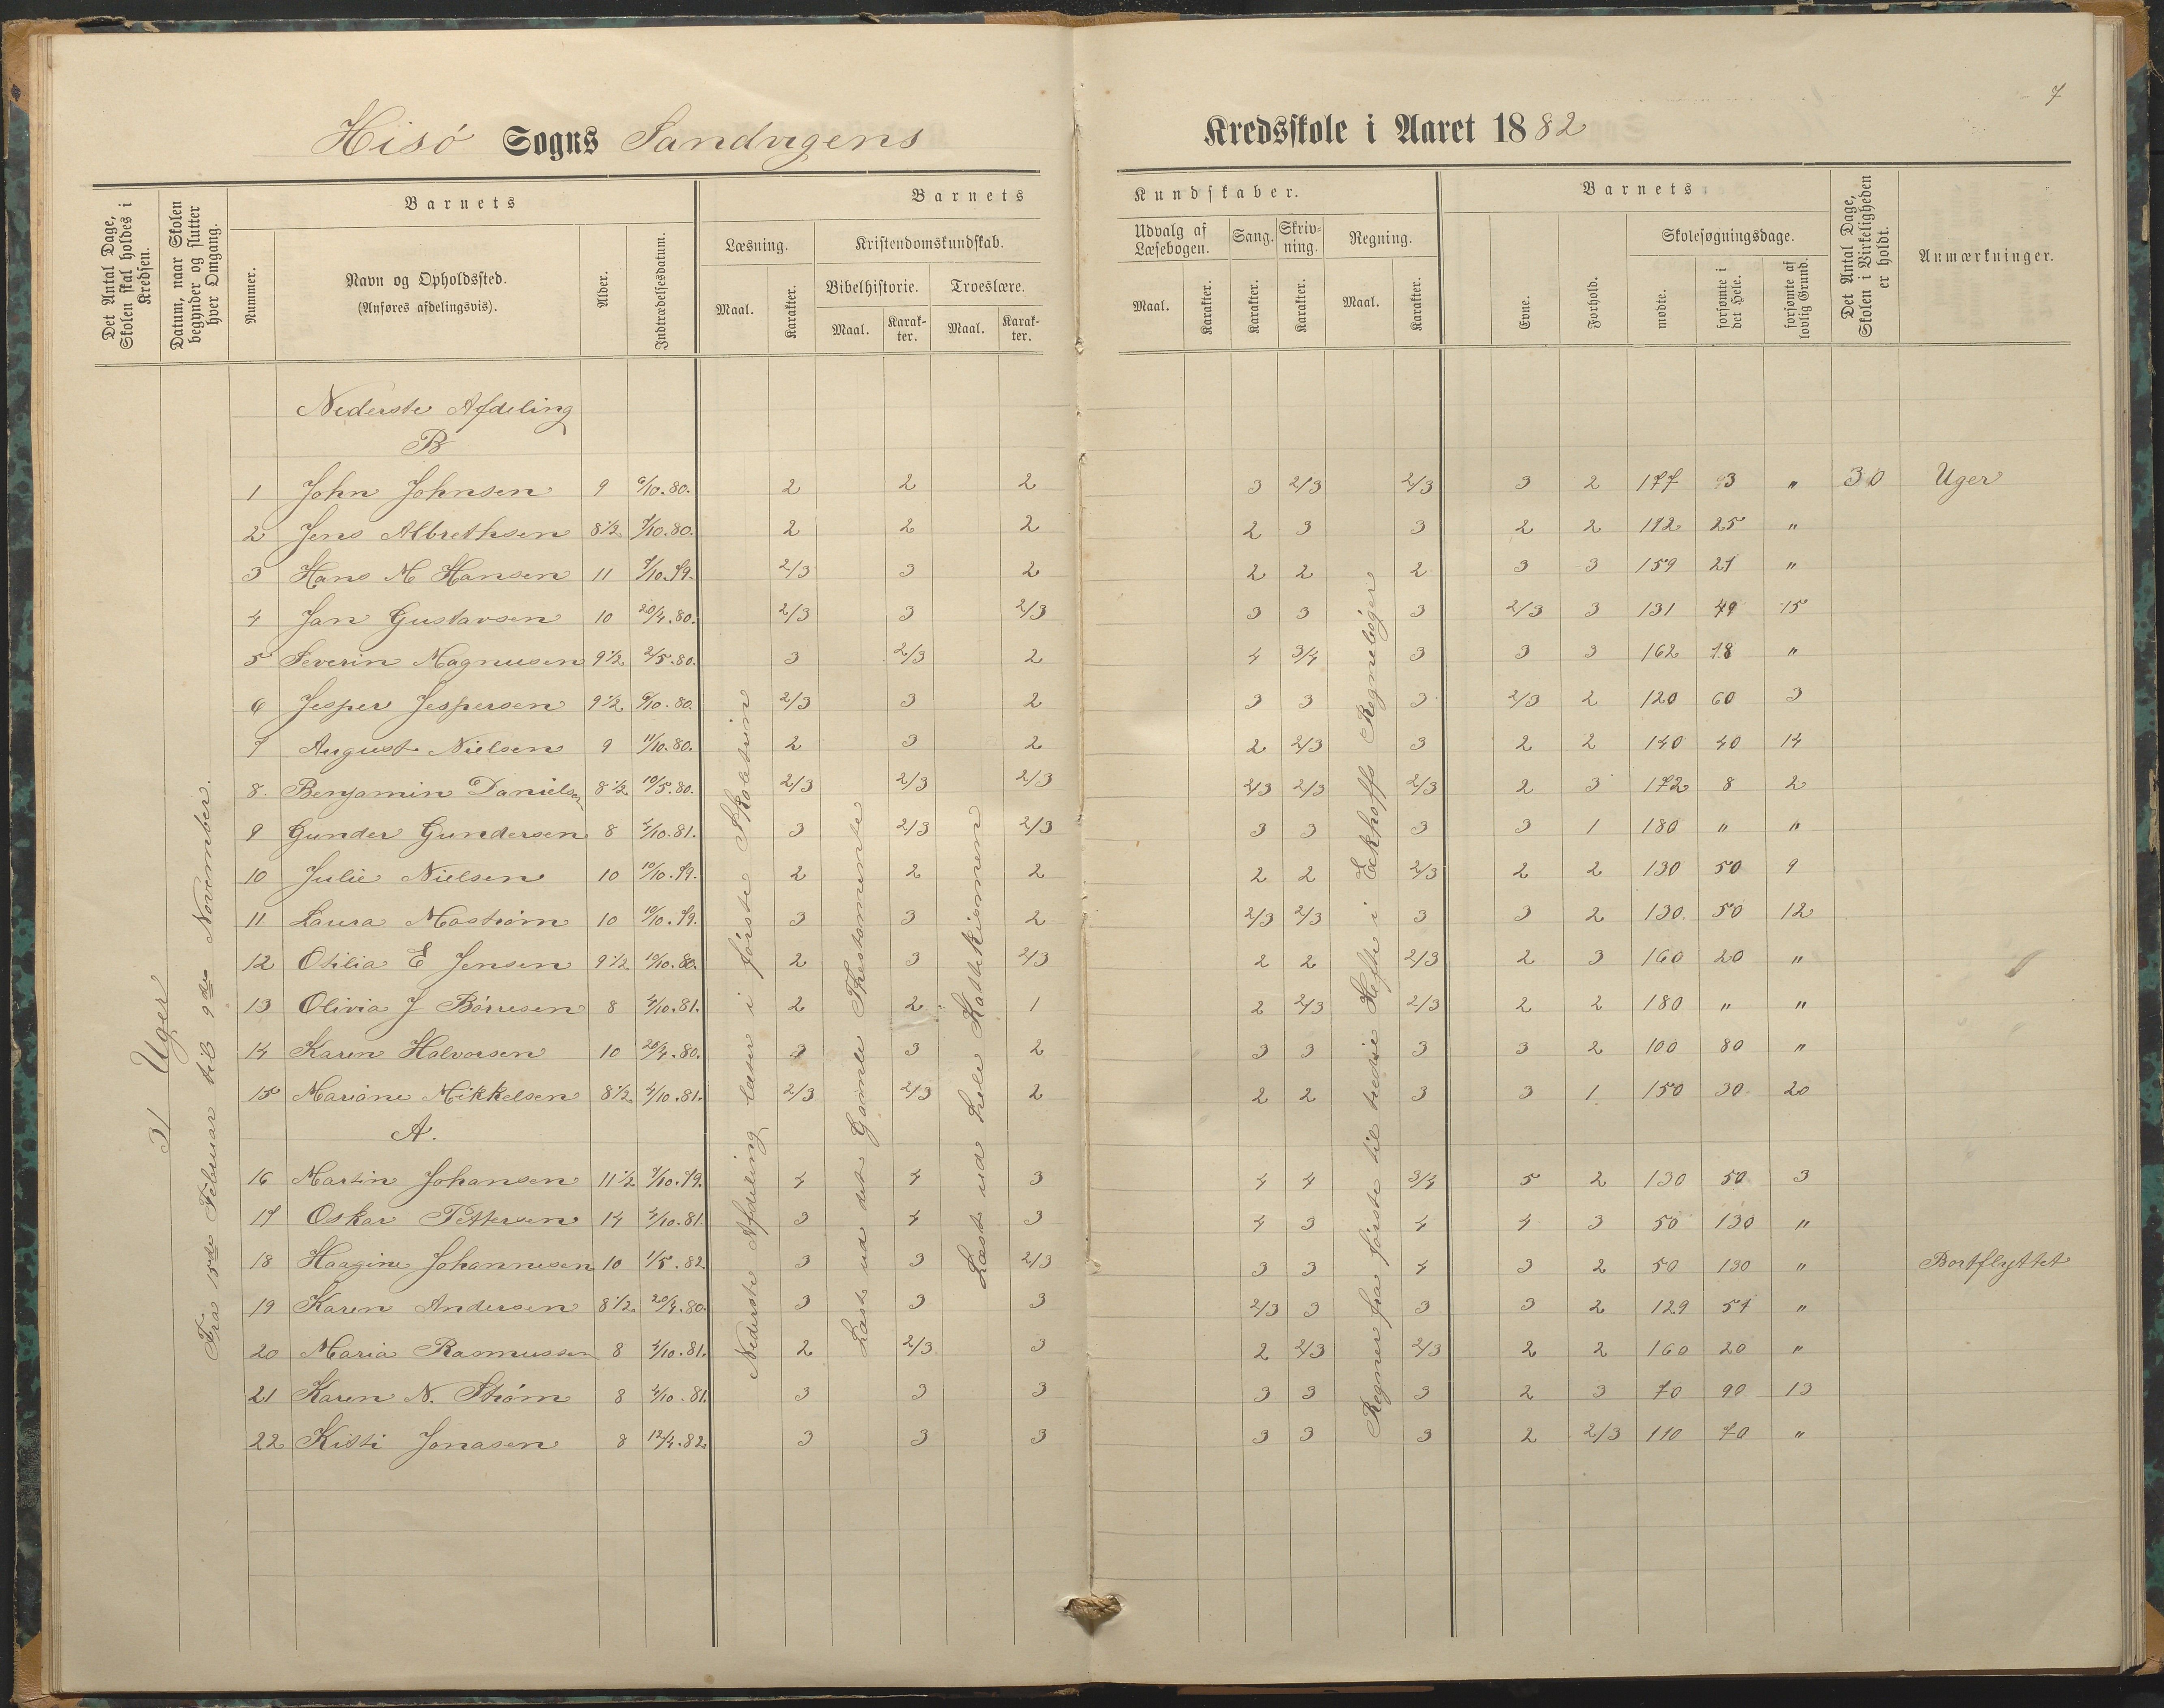 7
Hisø Sogns Sandvigens Kredsskole i Aaret 1882
Det Antal Dage, Skolen skal holdes i Kredsen.
Datum, naar Skolen begynder og slutter hver Omgang.
Nummer.
Barnets
Navn og Opholdssted.
(Anføres afdelingsvis).
Alder.
Indtrædelsesdatum.
Barnets Kundskaber.
Læsning.
Maal.
Karakter.
Kristendomskundskab.
Bibelhistorie.
Maal.
Karakter.
Troeslære.
Maal.
Karakter.
Udvalg af Læsebogen.
Maal.
Karakter.
Sang.
Karakter.
Skrivning.
Karakter.
Regning.
Maal.
Karakter.
Barnets
Evne.
Forhold.
Skolesøgningsdage.
mødte.
forsømte i det Hele.
forsømte af lovlig Grund.
Det Antal Dage, Skolen i Virkeligheden er holdt.
Anmærkninger.
31 Uger
Fra 15de Februar til 9de November.
Nederste Afdeling læser i første Skoletrin
Læst ud det Gamle Thestamente
Læst ud hele Kattekismen
Regner fra første til tredie Hefte i Eckhoffs Regnebøger
Nederste Afdeling
B
1 John Johnsen 9 6/10.80. 2 2 2 3 2/3 2/3 3 2 177 3 " 30 Uger
2 Jens Albrethsen 8 1/2 7/10.80. 2 2 2 2 3 3 2 2 25 "
3 Hans M Hansen 11 7/10.79. 2/3 3 2 2 2 2 3 3 159 21 "
4 Jan Gustavsen 10 20/4.80. 2/3 3 2/3 3 3 3 2/3 3 131 49 15
5 Severin Magnusen 9 1/2 2/5.80. 3 2/3 2 4 3/4 3 3 3 162 18 "
6 Jesper Jespersen 9 1/2 6/10.80. 2/3 3 2 3 3 3 2/3 2 120 60 3
7 August Nielsen 9 11/10.80. 2 3 2 2 2/3 3 2 2 140 40 14
8. Benjamin Danielsen 8 1/2 10/5.80. 2/3 2/3 2/3 2/3 2/3 2/3 2 3 172 8 2
9 Gunder Gundersen 8 4/10.81. 3 2/3 2/3 3 3 3 3 1 180 " "
10 Julie Nielsen 10 10/10.79. 2 2 2 2 2 2/3 2 2 130 50 9
11 Laura Mostrøm 10 10/10.79. 3 3 2 2/3 2/3 3 3 2 130. 50 12
12 Otilia E Jensen 9 1/2 10/10.80. 2 3 2/3 2 2 2/3 2 3 160 20 "
13 Olivia J Børresen 8 4/10.81. 2 2 1 2 2/3 2/3 2 2 180 " "
14 Karen Halvorsen 10 20/4.80. 3 3 2 3 3 3 3 2 100 80 "
15 Mariane Mikkelsen 8 1/2 4/10.81. 2/3 2/3 2 2 2 3 3 1 150 30 20
A.
16 Martin Johansen 11 1/2 7/10.79. 4 4 3 4 4 3/4 5 2 130 50 3
17 Oskar Pettersen 14 4/10.81. 3 4 3 4 3 4 4 3 50 130 "
18 Haagine Johannesen 10 1/5.82. 3 3 2/3 3 3 4 3 2 50 130 " Bortflyttet
19 Karen Andersen 8 1/2 20/4.80. 3 3 3 2/3 3 3 3 2 129 51 "
20 Maria Rasmussen 8 4/10.81. 2 2/3 3 2 2/3 2/3 2 2 160 20 "
21 Karen N. Strøm 8 4/10.81. 3 3 3 3 3 3 2 3 70 90 13
22 Kitti Jonasen 8 12/4.82. 3 3 3 3 3 3 2 2/3 110 70 "